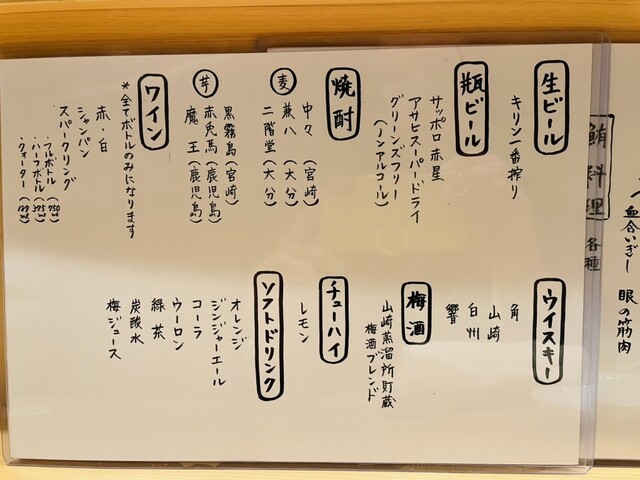 血合いぎし 眼の筋肉
鮪料理 各種
生ビール
キリン一番搾り
瓶ビール
サッポロ赤星
アサヒスーパードライ
グリーンズフリー
(ノンアルコール)
焼酎
麦
中々 (宮崎)
兼八 (大分)
二階堂 (大分)
芋
黒霧島 (宮崎)
赤兎馬 (鹿児島)
魔王 (鹿児島)
ワイン
*全てボトルのみになります
赤・白
シャンパン
スパークリング
・フルボトル (750ml)
・ハーフボトル (375ml)
・クォーター
ウイスキー
角
山崎
白州
響
梅酒
山崎蒸溜所貯蔵
梅酒ブレンド
チューハイ
レモン
ソフトドリンク
オレンジ
ジンジャーエール
コーラ
ウーロン
緑茶
炭酸水
梅ジュース